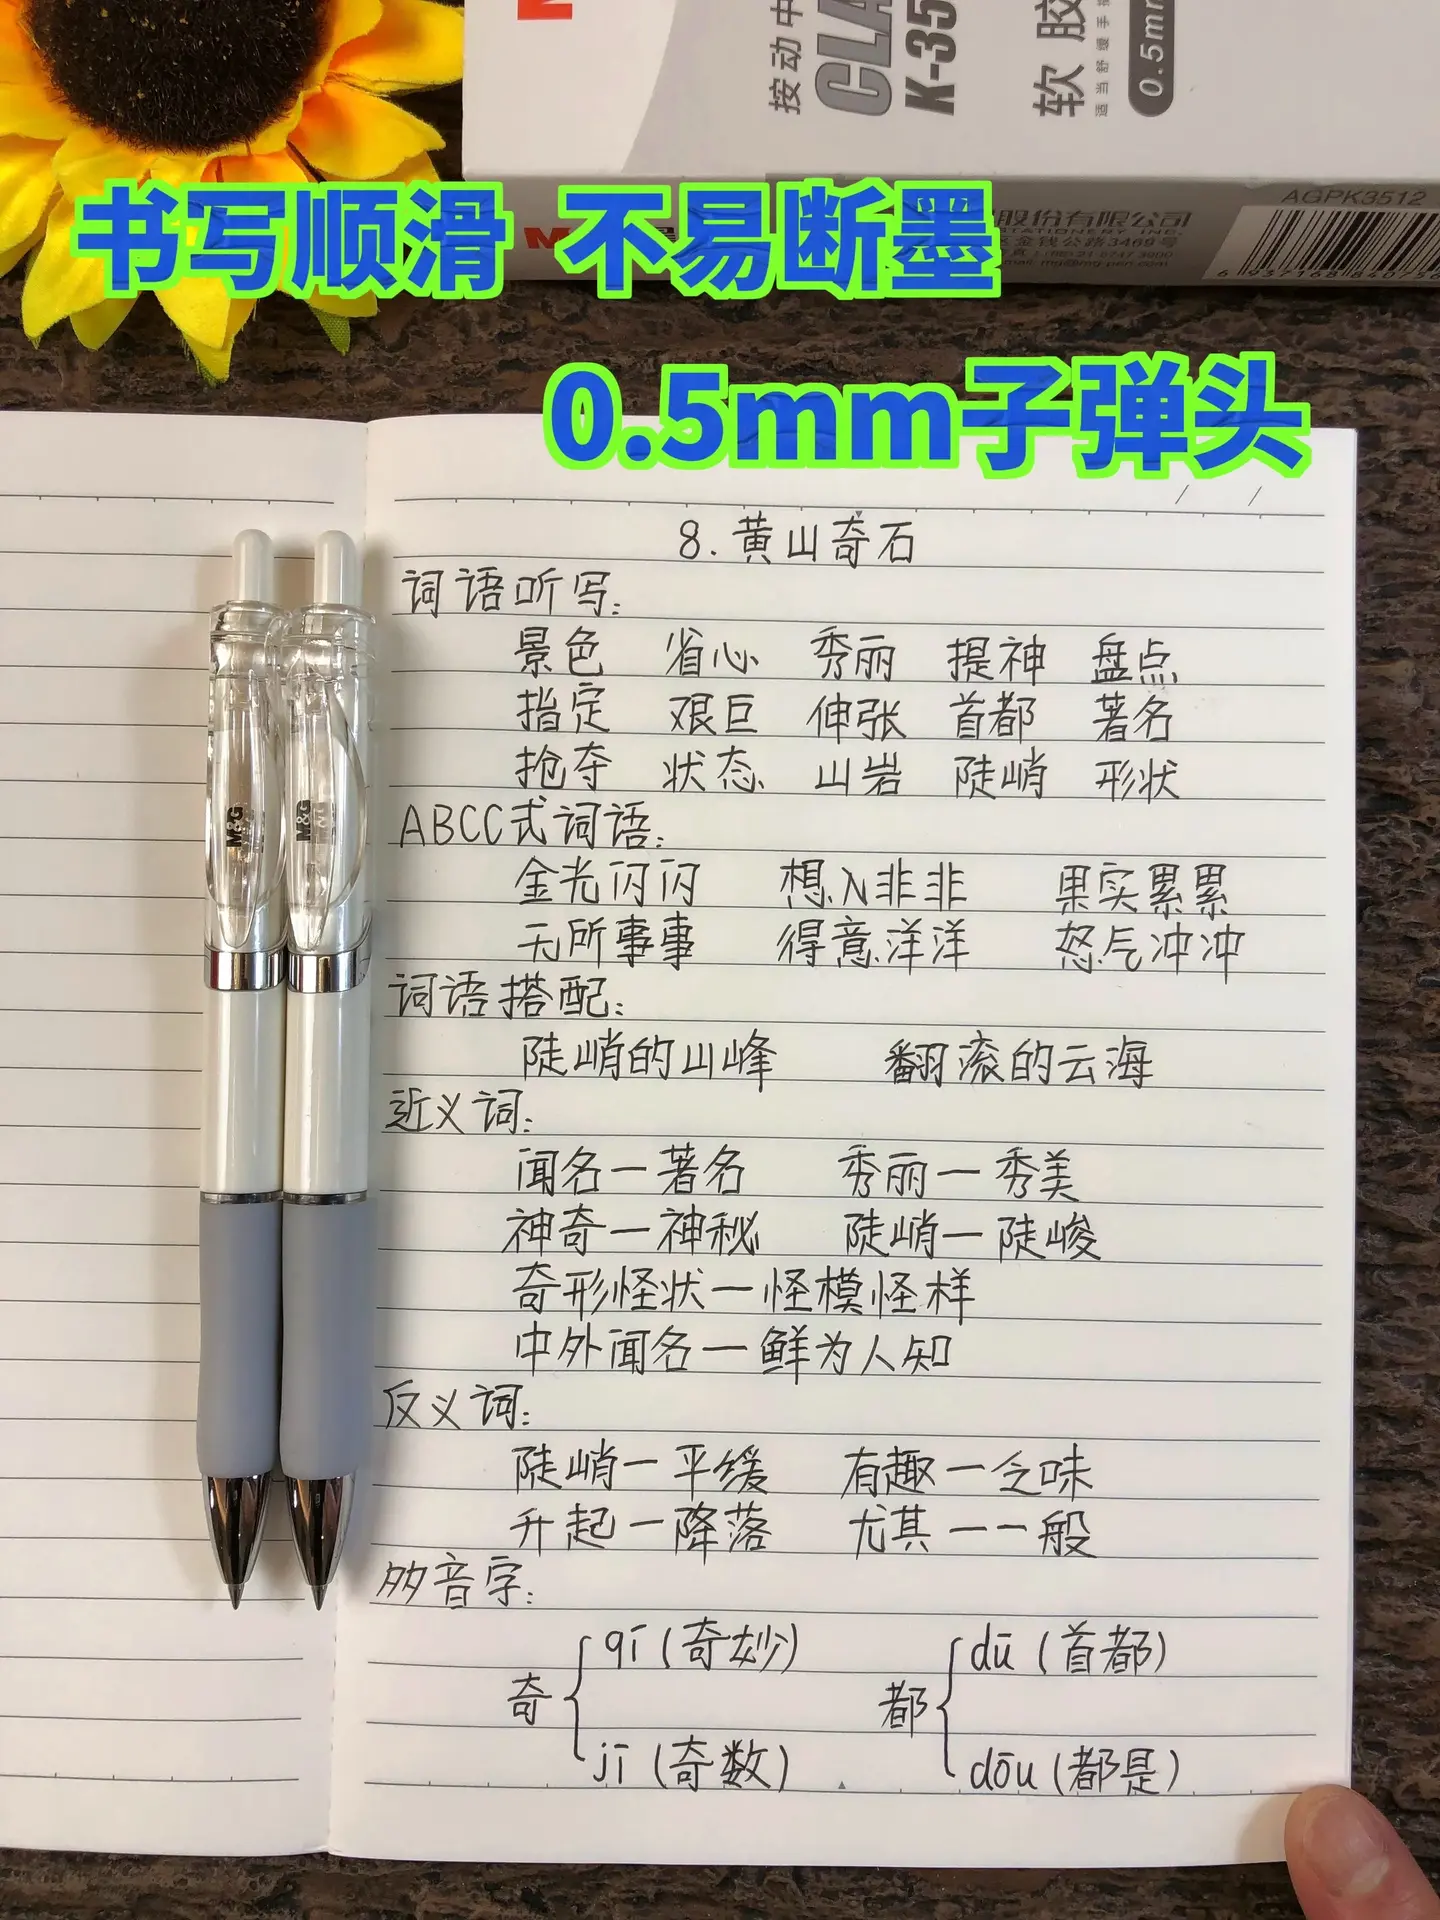 按动中
CLA
K-35
软胶
适当舒缓手
0.5mm
AGPK3512
股份有限公司
区金钱公路3469号
书写顺滑 不易断墨
0.5mm子弹头
M&G
M&G
8.黄山奇石
词语听写:
景色 省心 秀丽 提神 盘点
指定 艰巨 伸张 首都 著名
抢夺 状态 山岩 陡峭 形状
ABCC式词语:
金光闪闪 想入非非 果实累累
无所事事 得意洋洋 怒气冲冲
词语搭配:
陡峭的山峰 翻滚的云海
近义词:
闻名一著名 秀丽一秀美
神奇一神秘 陡峭一陡峻
奇形怪状一怪模怪样
中外闻名一鲜为人知
反义词:
陡峭一平缓 有趣一乏味
升起一降落 尤其一一般
多音字:
奇 qī(奇妙) 都 dū(首都)
jī(奇数) dōu(都是)